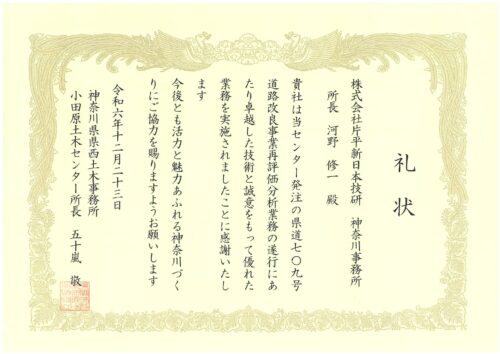 礼状
株式会社片平新日本技研 神奈川事務所
所長 河野 修一 殿
貴社は当センター発注の県道七〇九号
道路改良事業再評価分析業務の遂行にあ
たり卓越した技術と誠意をもって優れた
業務を実施されましたことに感謝いたし
ます
今後とも活力と魅力あふれる神奈川づく
りにご協力を賜りますようお願いします
令和六年十二月二十三日
神奈川県県西土木事務所
小田原土木センター所長 五十嵐 敬